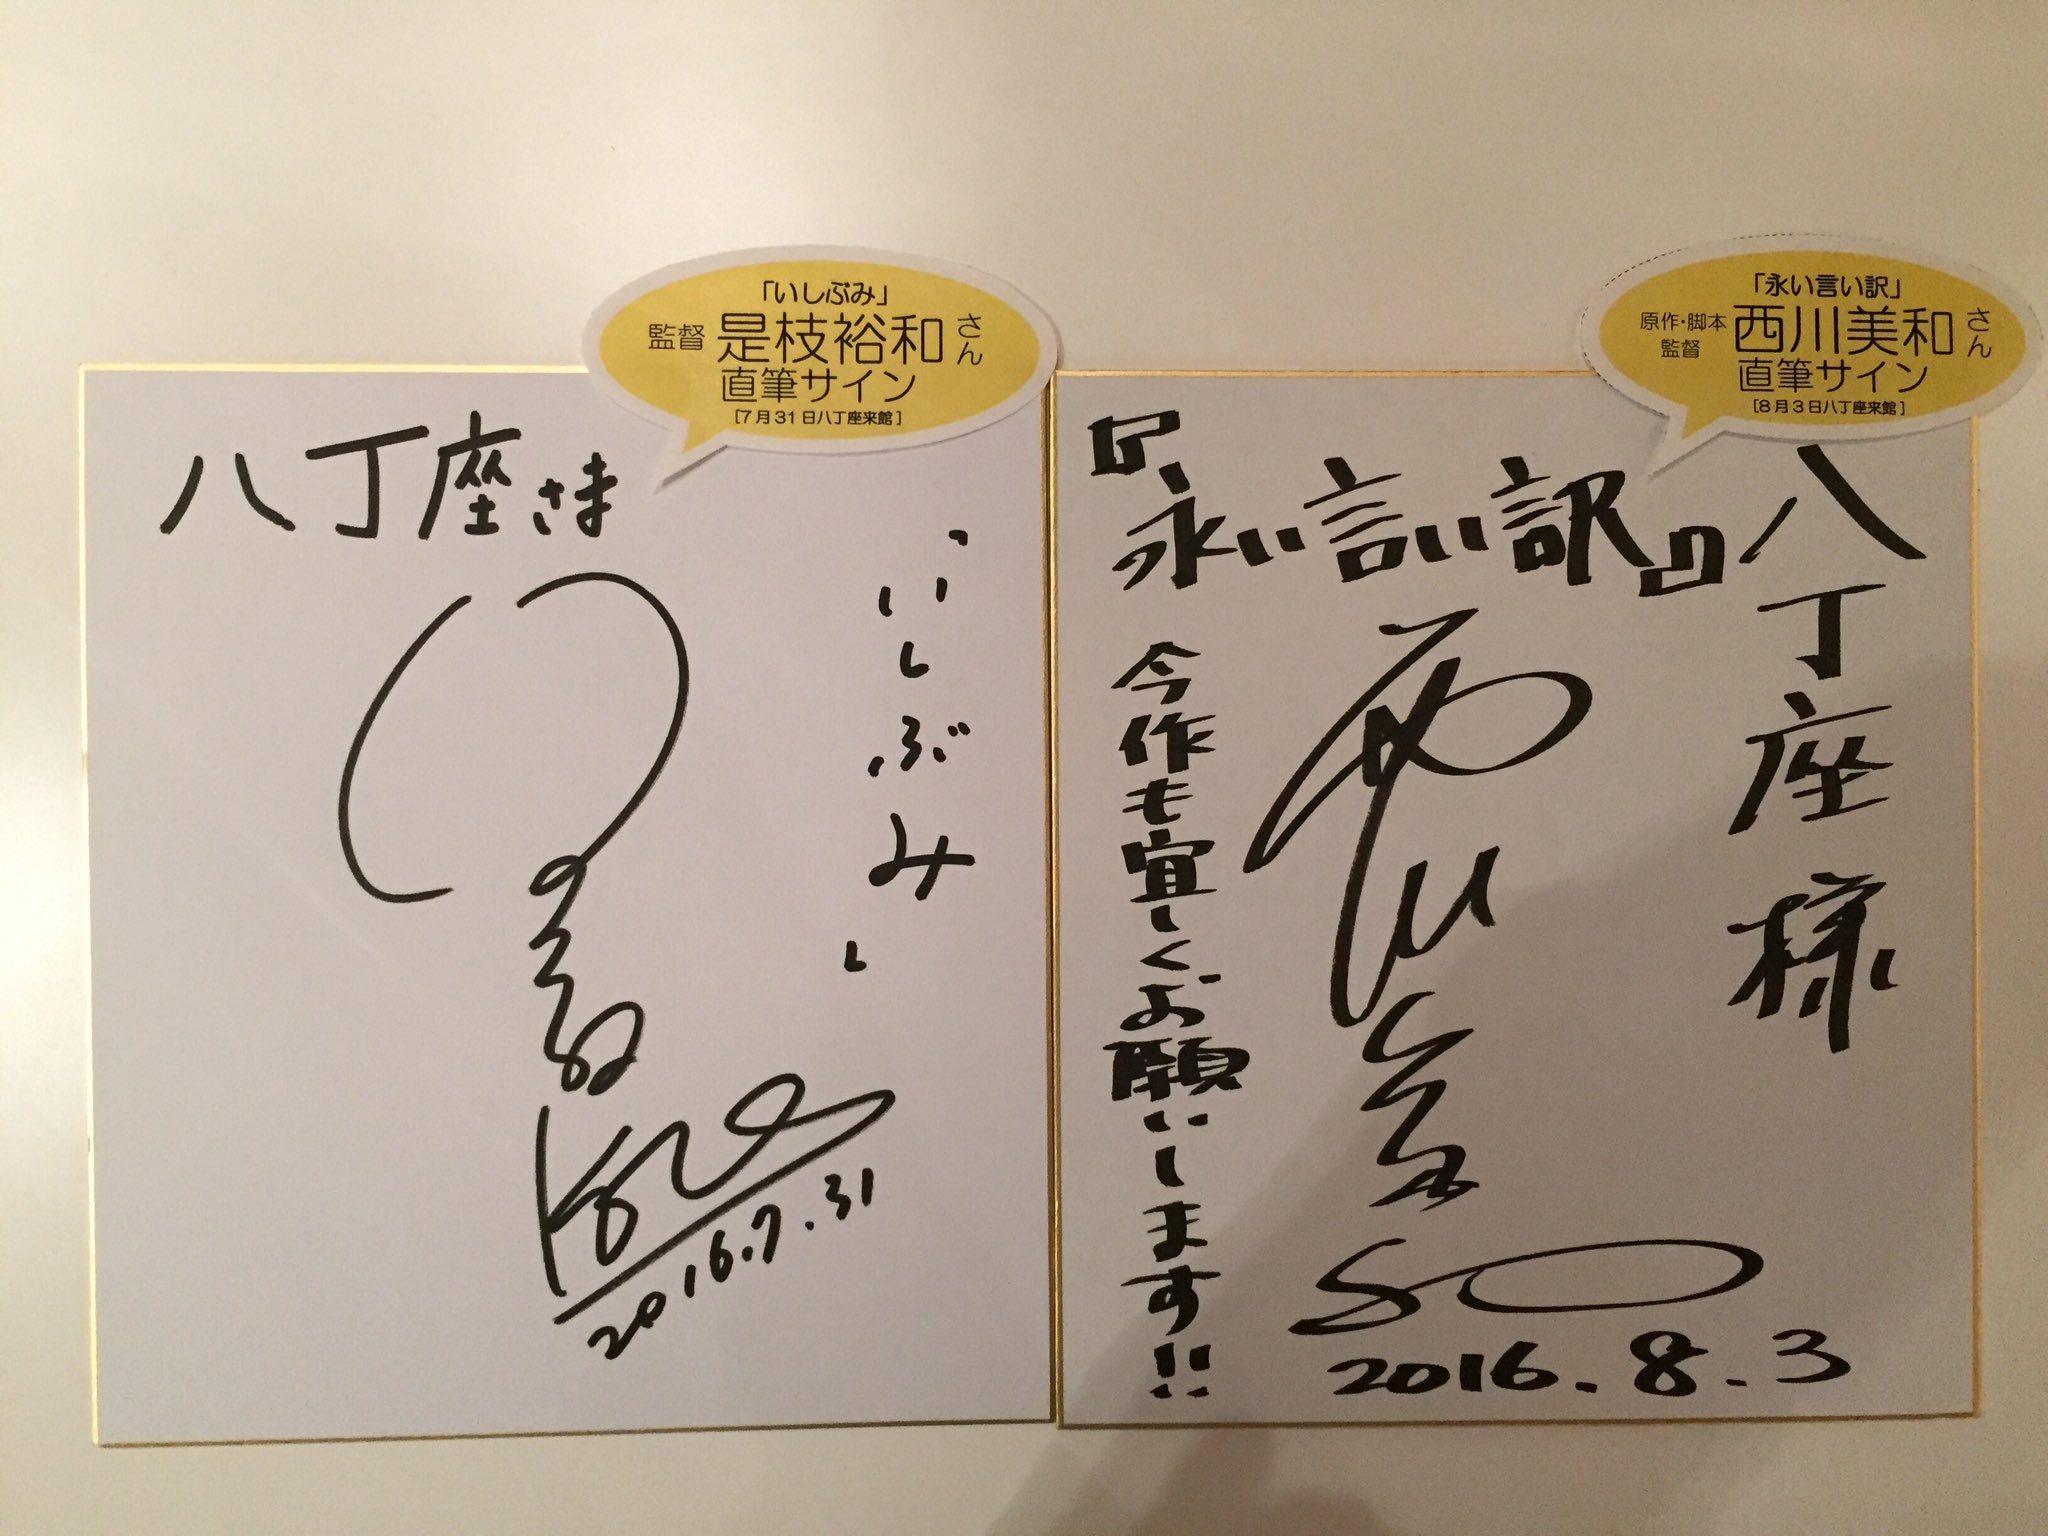 「いしぶみ」
監督 是枝裕和さん
直筆サイン
[7月31日八丁座来館]
八丁座さま
「いしぶみ」
2016.7.31
「永い言い訳」
原作・脚本
監督
西川美和さん
直筆サイン
[8月3日八丁座来館]
八丁座様
『永い言い訳』
今作も宜しくお願いします!!
2016.8.3